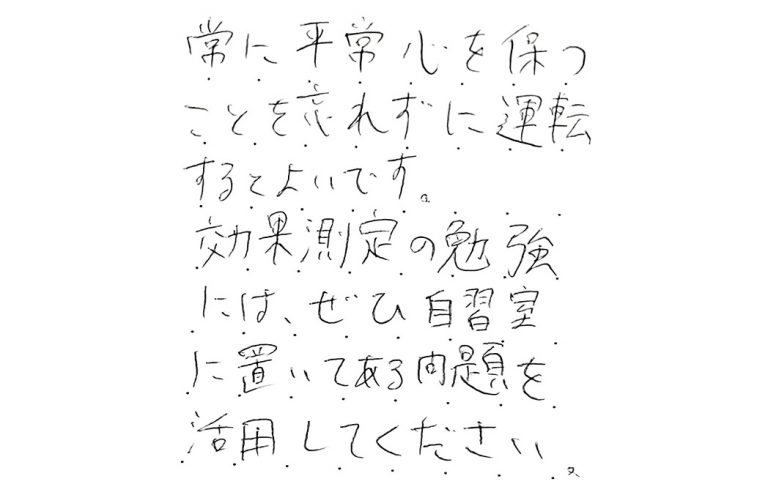 常に平常心を保つ
ことを忘れずに運転
するとよいです。
効果測定の勉強
には、ぜひ自習室
に置いてある問題を
活用してください。